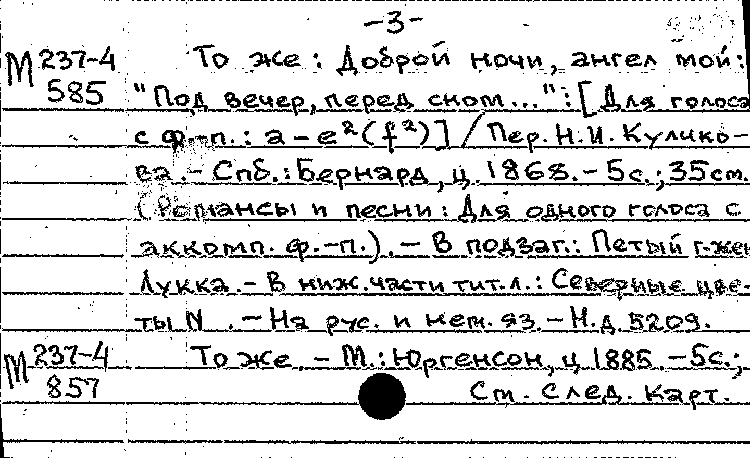 -3-
М 237-4 То же: Доброй ночи, ангел мой:
585 "Под вечер, перед сном...": [Для голоса
с ф.-п.: a-e²(f²)] / Пер. Н.И. Кулико-
ва. - Спб.: Бернард, ц. 1868. - 5с.; 35см.
(Романсы и песни: Для одного голоса с
аккомп. ф.-п.). - В подзаг.: Петый г-жей
Лукка. - В ниж. части тит. л.: Северные цве-
ты N . - На рус. и нем. яз. - Н.д. 5209.
М 237-4 То же. - М.: Юргенсон, ц. 1885. - 5с.;
857 См. след. карт.